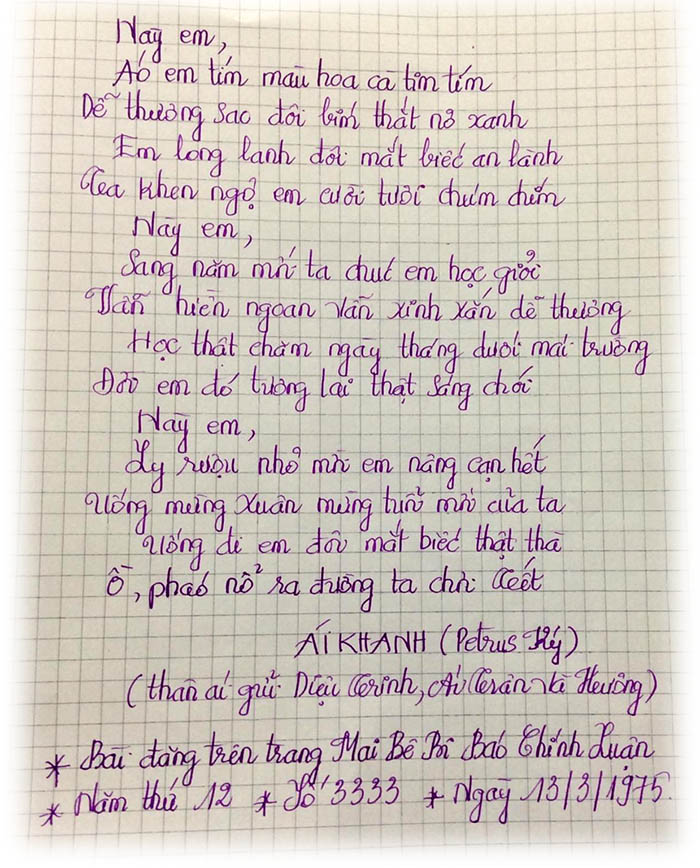 Này em,
Áo em tím màu hoa cà tim tím
Dễ thương sao đôi bím thắt nơ xanh
Em long lanh đôi mắt biếc an lành
Ta khen ngộ em cười tươi chúm chím
Này em,
Sang năm mới ta chúc em học giỏi
Vẫn hiền ngoan vẫn xinh xắn dễ thương
Học thật chăm ngày tháng dưới mái trường
Đời em đó tương lai thật sáng chói
Này em,
Ly rượu nhỏ mời em nâng cạn hết
Uống mừng Xuân mừng tuổi mới của ta
Uống đi em đôi mắt biếc thật thà
Ồ, pháo nổ ra đường ta chơi Tết
ÁI KHANH (Petrus Ký)
(thân ái gửi Diệu Trinh, Ái Trân và Hương)
* Bài đăng trên trang Mai Bê Bi Báo Chính Luận
* Năm thứ 12 * Số 3333 * Ngày 13/3/1975.